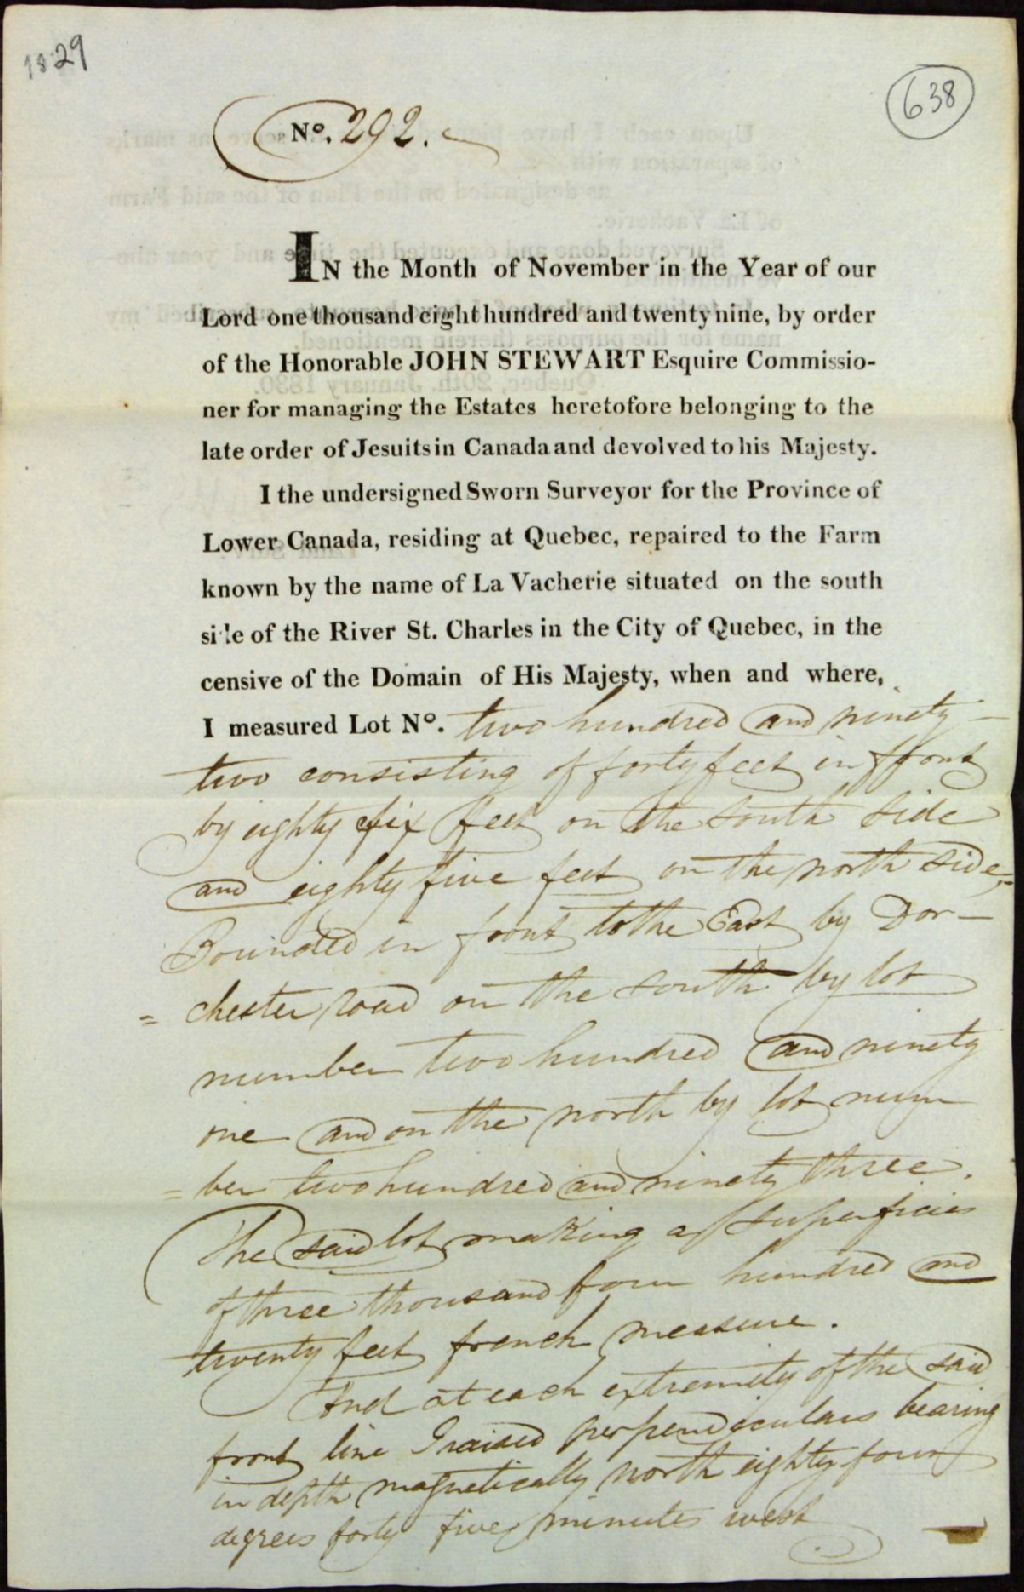 1829
638
No. 292.
IN the Month of November in the Year of our
Lord one thousand eight hundred and twenty nine, by order
of the Honorable JOHN STEWART Esquire Commissio-
ner for managing the Estates heretofore belonging to the
late order of Jesuits in Canada and devolved to his Majesty.
I the undersigned Sworn Surveyor for the Province of
Lower Canada, residing at Quebec, repaired to the Farm
known by the name of La Vacherie situated on the south
side of the River St. Charles in the City of Quebec, in the
censive of the Domain of His Majesty, when and where,
I measured Lot No. two hundred and ninety
two consisting of forty feet in front
by eighty six feet on the south side
and eighty five feet on the north side,
Bounded in front to the East by Dor-
= chester road on the south by lot
number two hundred and ninety
one and on the north by lot num
= ber two hundred and ninety three.
The said lot making a superficies
of three thousand four hundred and
twenty feet french measure.
And at each extremity of the said
front line I raised perpendiculars bearing
in depth magnetically north eighty four
degrees forty five minutes west